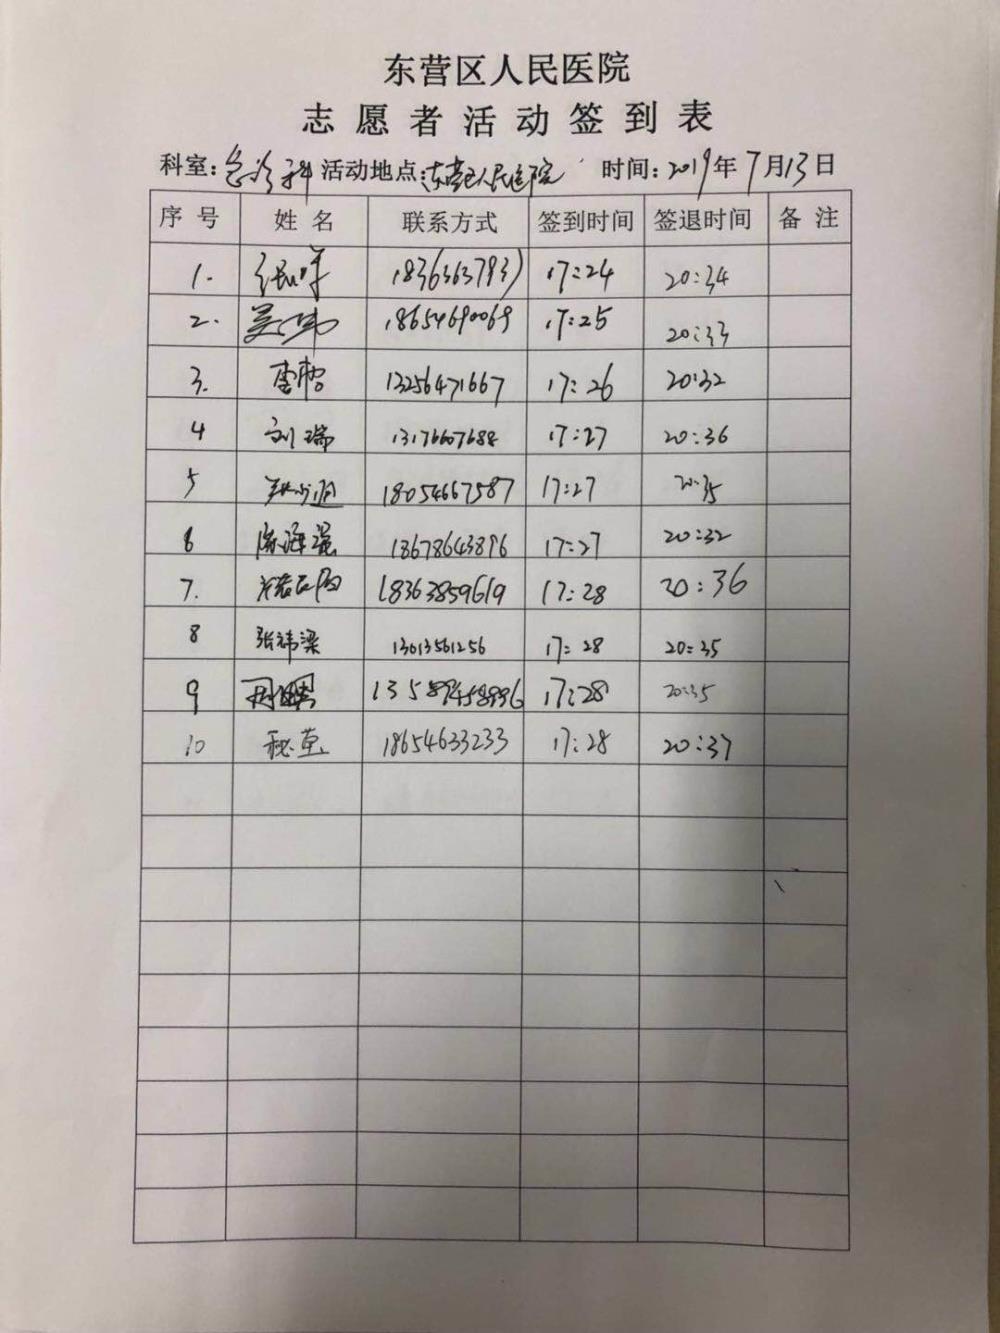 东营区人民医院
志愿者活动签到表
科室:急诊科 活动地点:东营区人民医院 时间:2019年7月13日
序号 姓名 联系方式 签到时间 签退时间 备注
1. 17:24 20:34
2. 18654690069 17:25 20:33
3. 13256471667 17:26 20:32
4 刘瑞 13176607688 17:27 20:36
5 18054667587 17:27 20:35
6 陈海强 18678643896 17:27 20:32
7. 18363859619 17:28 20:36
8 张祎梁 13013561256 17:28 20:35
9 17:28 20:35
10 18654633233 17:28 20:37